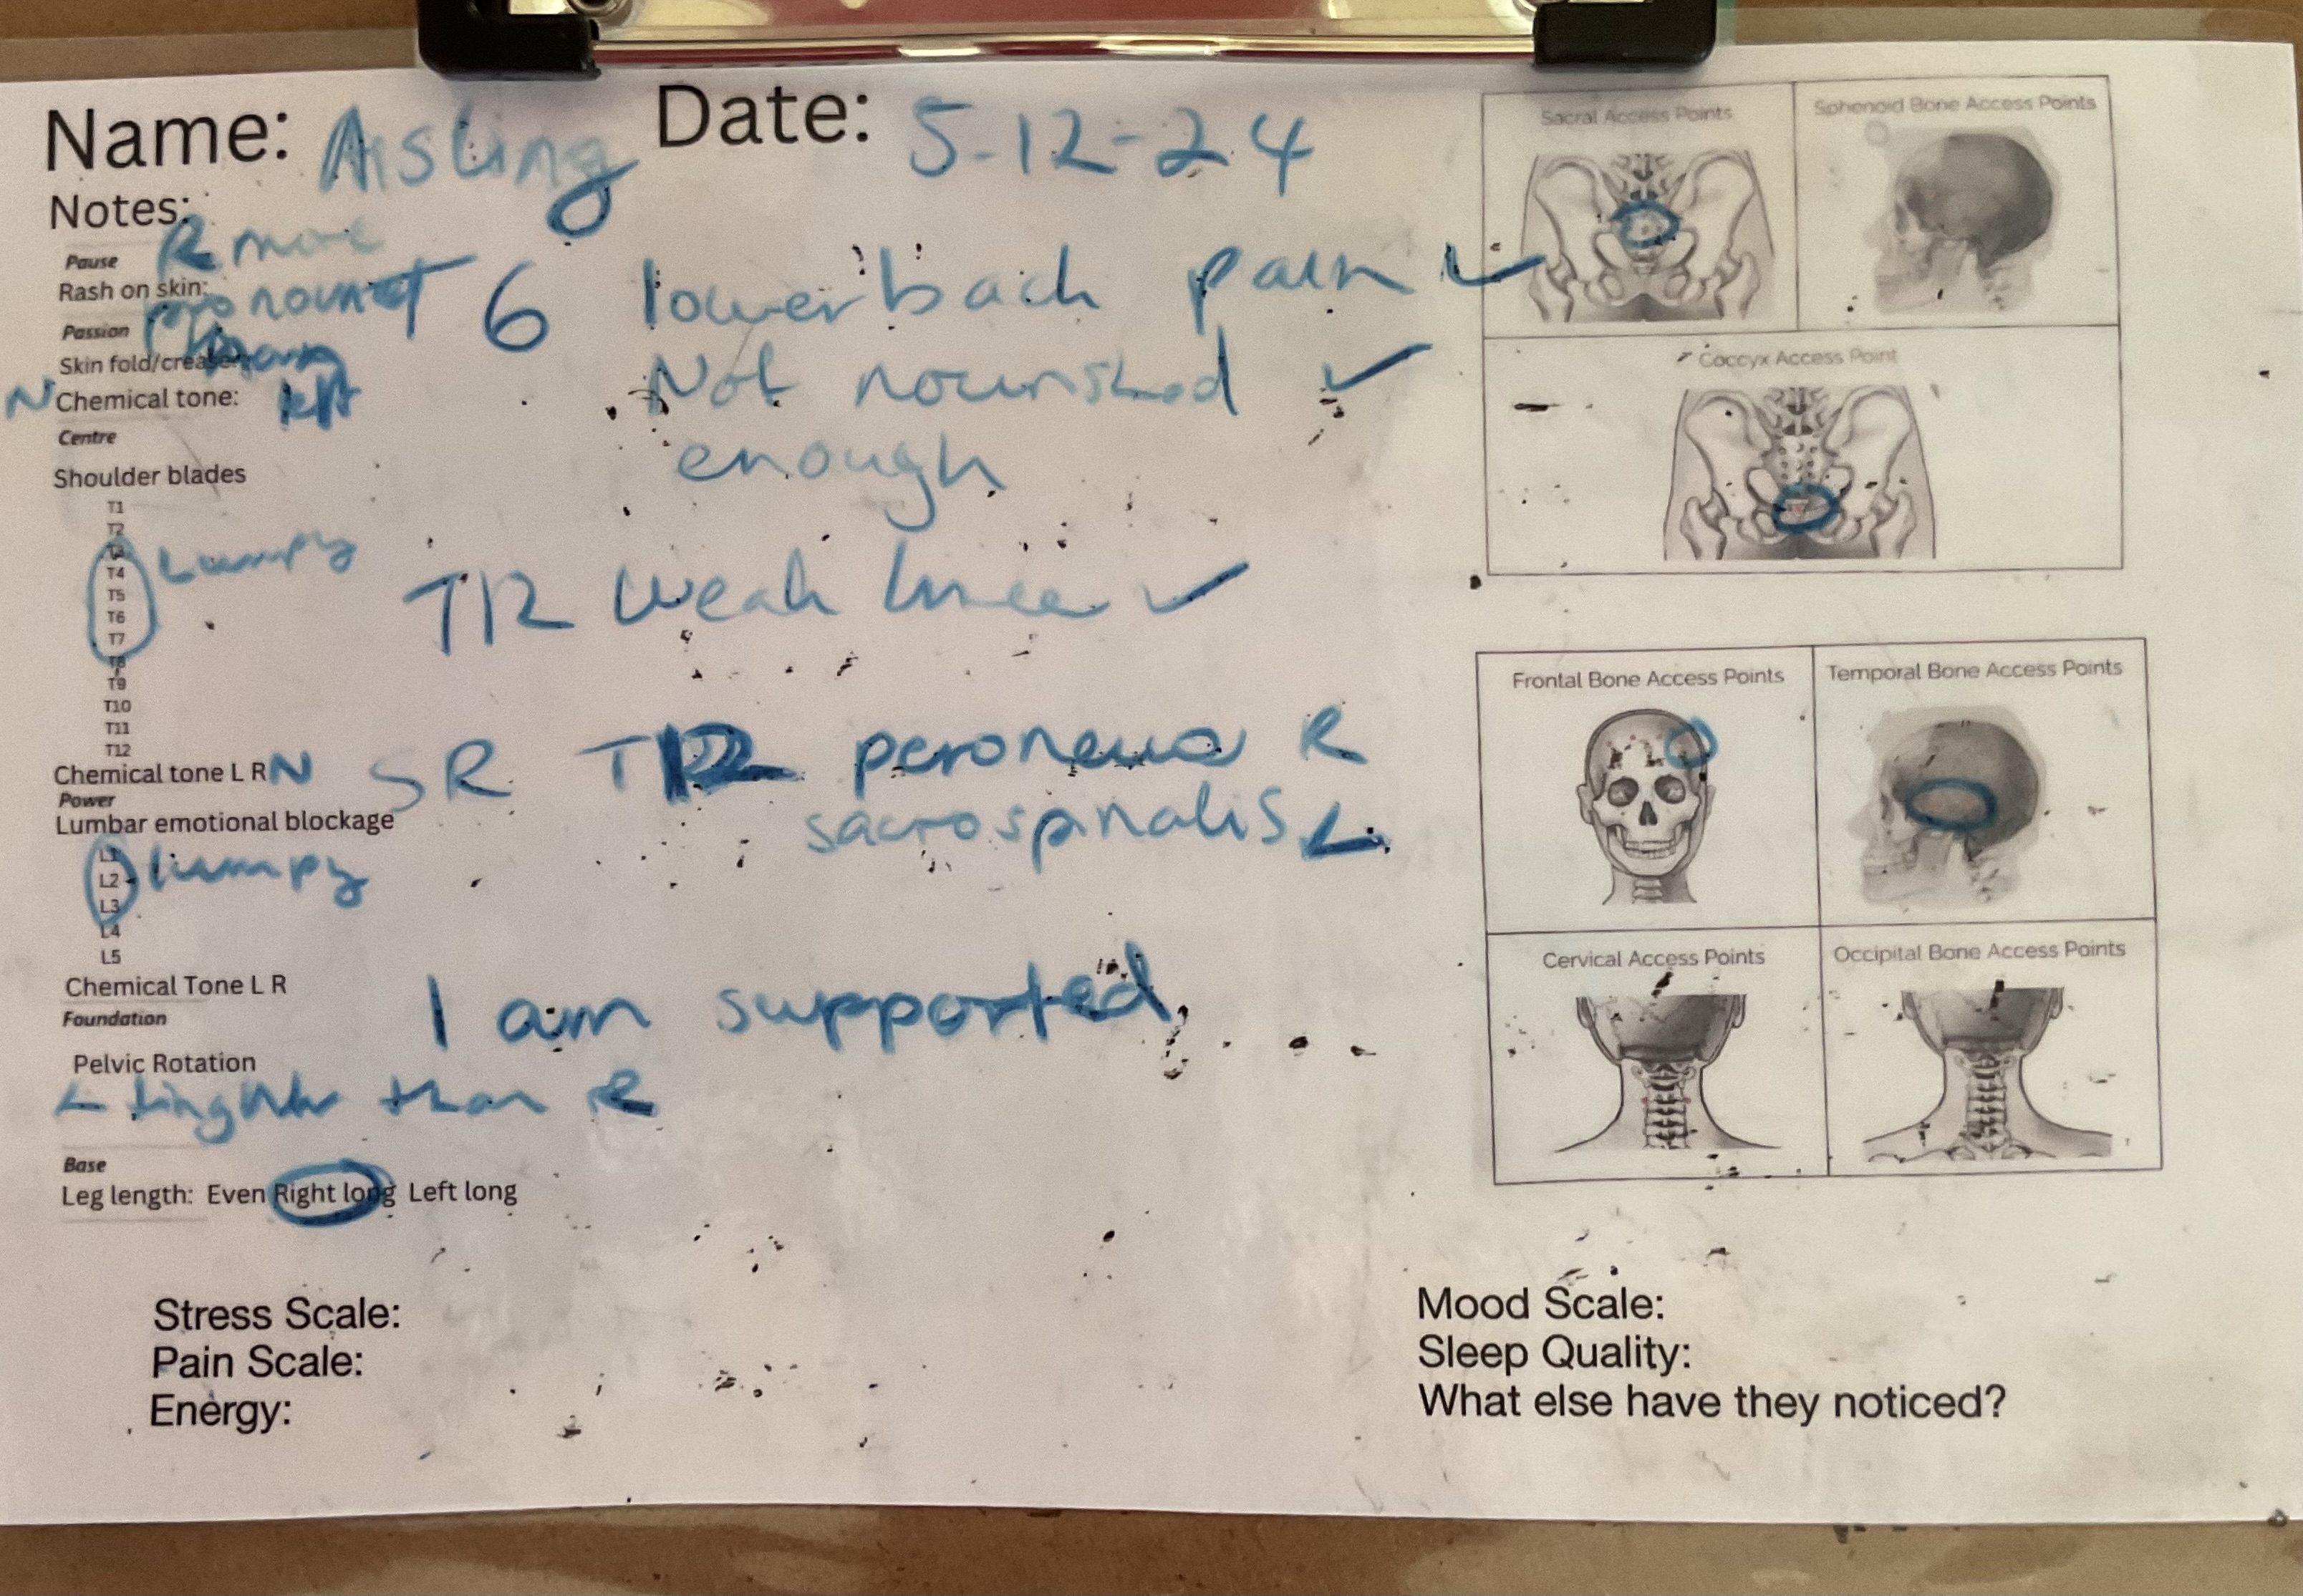 Name: Aisling Date: 5-12-24
Notes:
R more
Pause
Rash on skin:
pronount T6 lower back pain ✓
Passion
than
Skin fold/crease:
left
Not nourished ✓
N Chemical tone:
enough
Centre
Shoulder blades
T1
T2
T3
Lumpy
T4
T5
T12 Weak knee ✓
T6
T7
T8
T9
T10
T11
T12
Chemical tone L R N SR T12 peroneus R
Power
sacrospinalis L
Lumbar emotional blockage
L1
L2 lumpy
L3
L4
L5
Chemical Tone L R
I am supported
Foundation
Pelvic Rotation
L tinghter than R
Base
Leg length: Even Right long Left long
Stress Scale:
Pain Scale:
Energy:
Sacral Access Points
Sphenoid Bone Access Points
Coccyx Access Point
Frontal Bone Access Points
Temporal Bone Access Points
Cervical Access Points
Occipital Bone Access Points
Mood Scale:
Sleep Quality:
What else have they noticed?